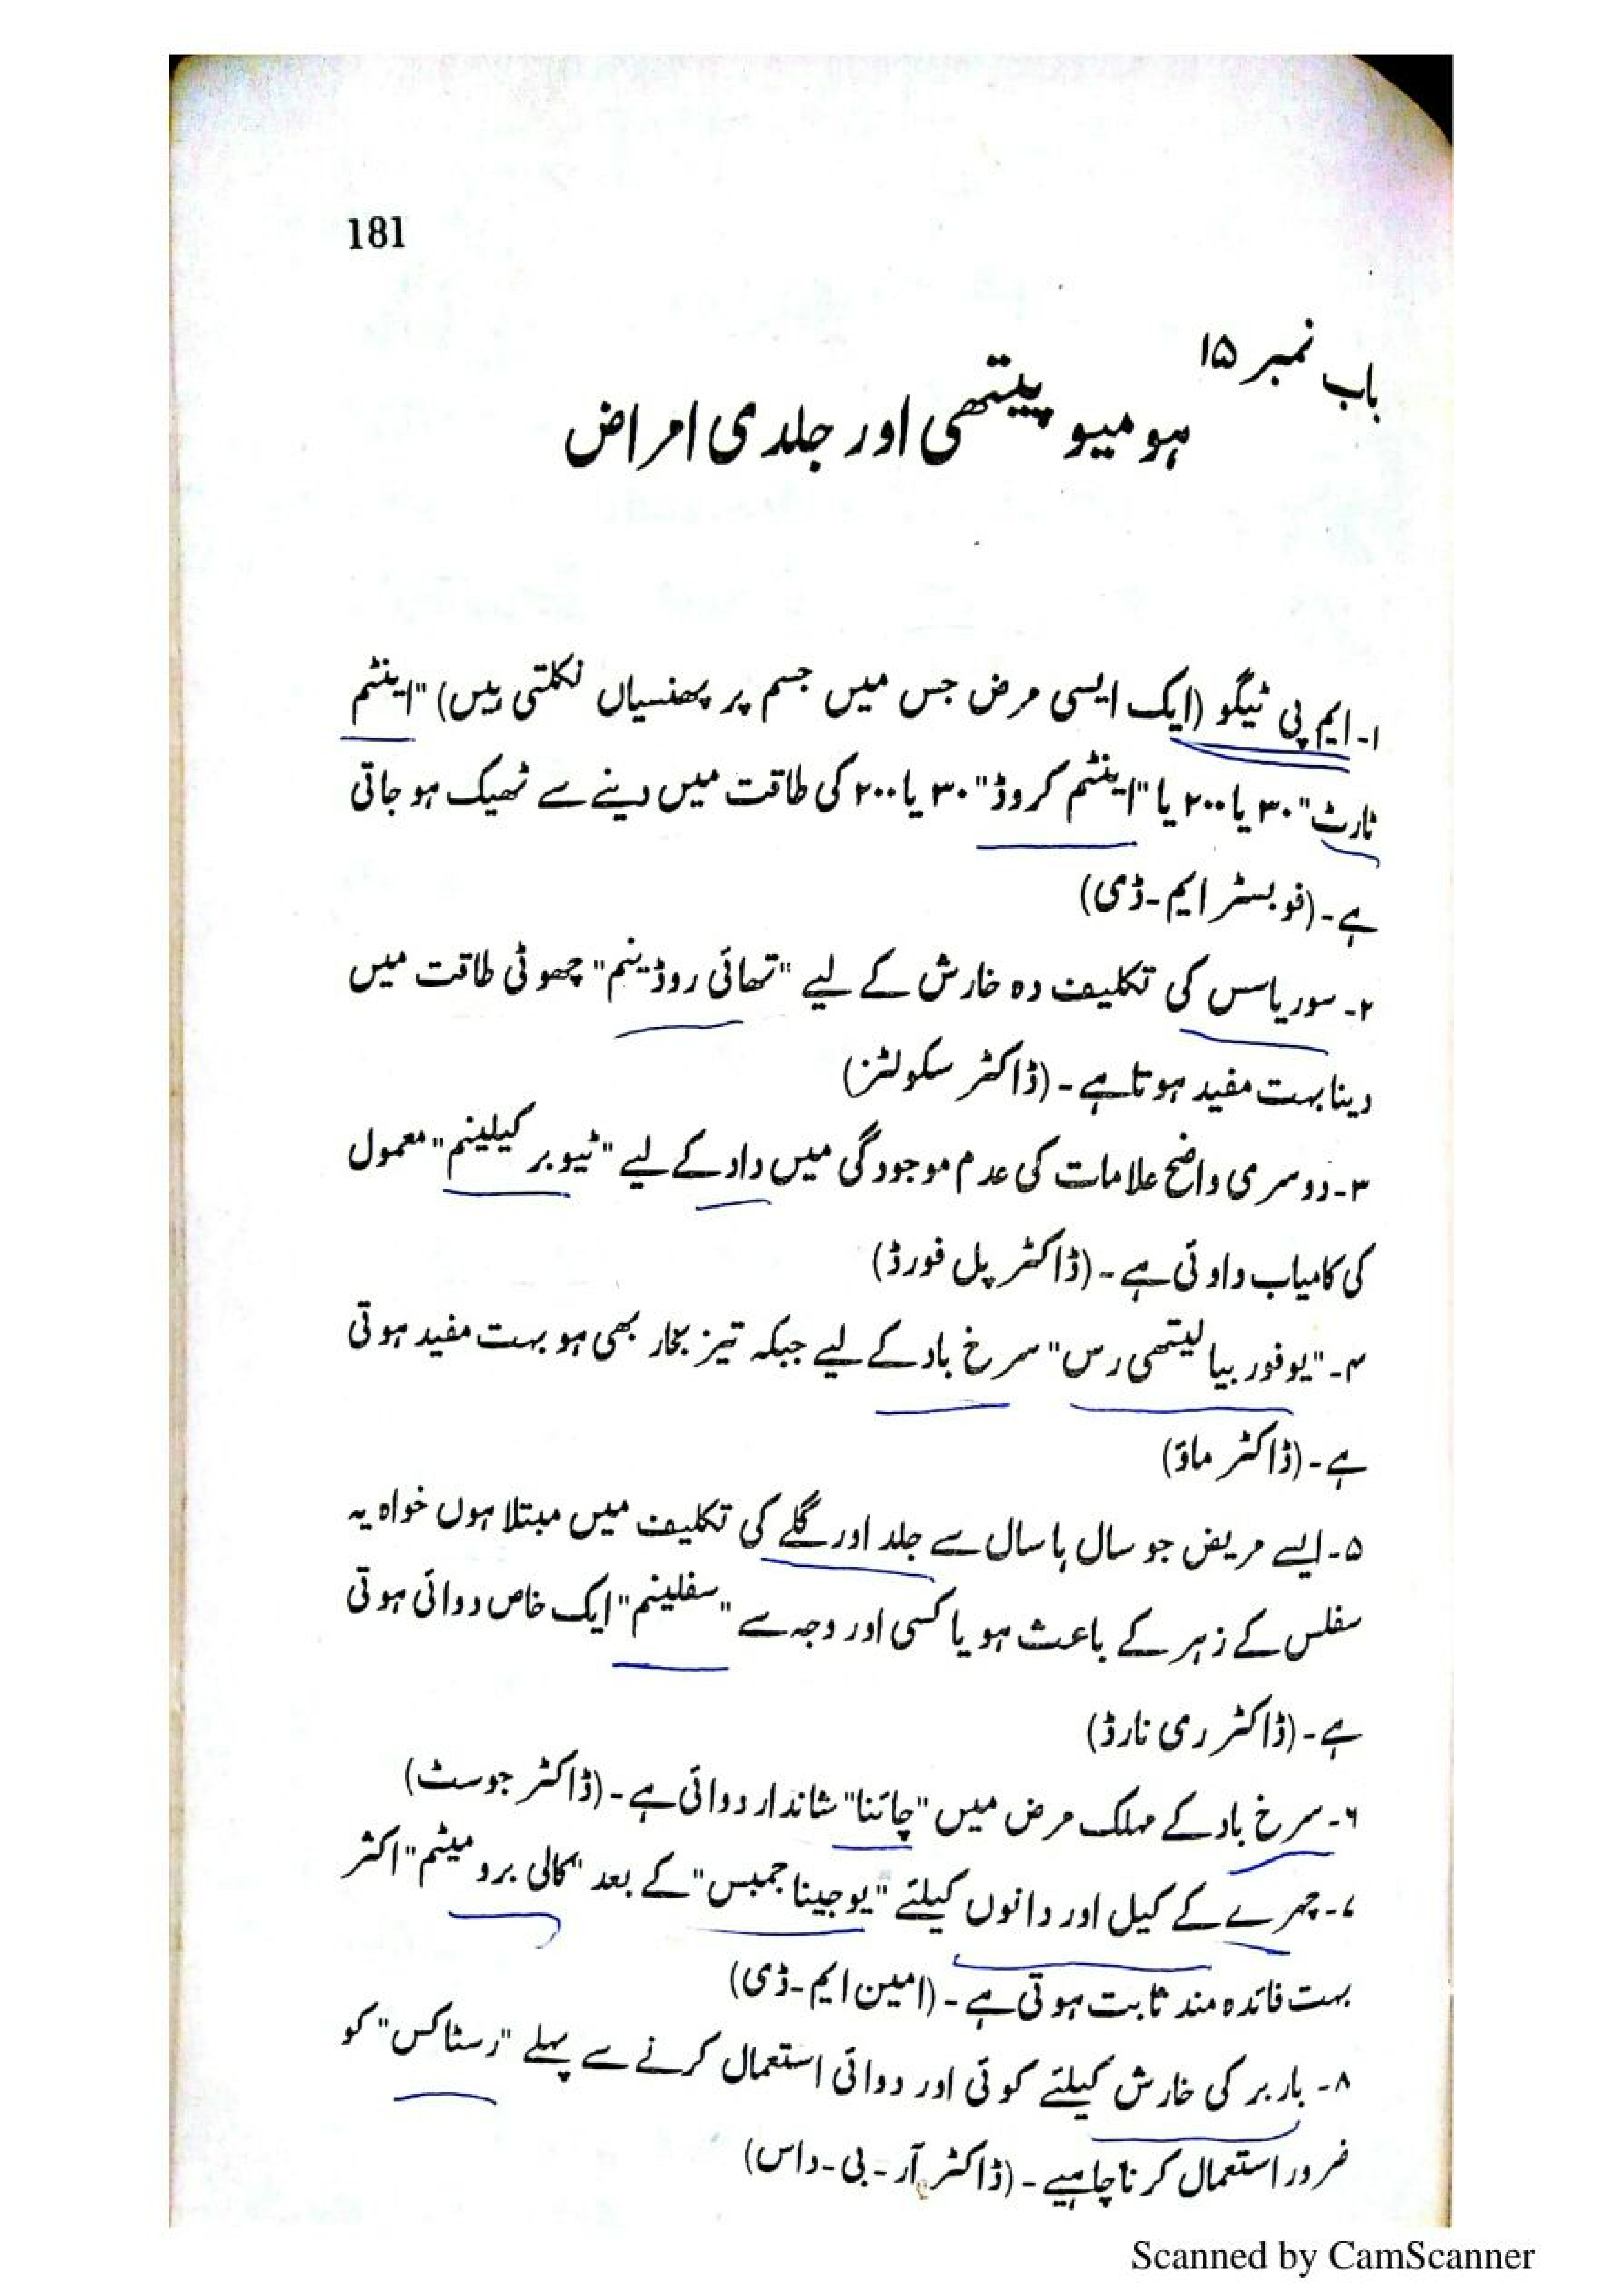 181
باب نمبر ۱۵
ہومیو پیتھی اور جلدی امراض
۱۔ ایم پی ٹیگو (ایک ایسی مرض جس میں جسم پر پھنسیاں نکلتی ہیں) "اینٹم
ٹارٹ" ۳۰ یا ۲۰۰ یا "اینٹم کروڈ" ۳۰ یا ۲۰۰ کی طاقت میں دینے سے ٹھیک ہو جاتی
ہے۔ (فوبسٹر ایم۔ڈی)
۲۔ سوریاسس کی تکلیف دہ خارش کے لیے "تھائی روڈینم" چھوٹی طاقت میں
دینا بہت مفید ہوتا ہے۔ (ڈاکٹر سکولٹز)
۳۔ دوسری واضح علامات کی عدم موجودگی میں داد کے لیے "ٹیوبر کیلینم" معمول
کی کامیاب داوئی ہے۔ (ڈاکٹر پل فورڈ)
۴۔ "یوفوربیا لیتھی رس" سرخ باد کے لیے جبکہ تیز بخار بھی ہو بہت مفید ہوتی
ہے۔ (ڈاکٹر ماؤ)
۵۔ ایسے مریض جو سال ہا سال سے جلد اور گلے کی تکلیف میں مبتلا ہوں خواہ یہ
سفلس کے زہر کے باعث ہو یا کسی اور وجہ سے "سفلینم" ایک خاص دوائی ہوتی
ہے۔ (ڈاکٹر ری نارڈ)
۶۔ سرخ باد کے مہلک مرض میں "چائنا" شاندار دوائی ہے۔ (ڈاکٹر جوسٹ)
۷۔ چہرے کے کیل اور دانوں کیلئے "یوجینا جمبس" کے بعد "کالی برومیٹم" اکثر
بہت فائدہ مند ثابت ہوتی ہے۔ (امین ایم۔ڈی)
۸۔ باربر کی خارش کیلئے کوئی اور دوائی استعمال کرنے سے پہلے "رسٹاکس" کو
ضرور استعمال کرنا چاہیے۔ (ڈاکٹر آر۔بی۔داس)
Scanned by CamScanner